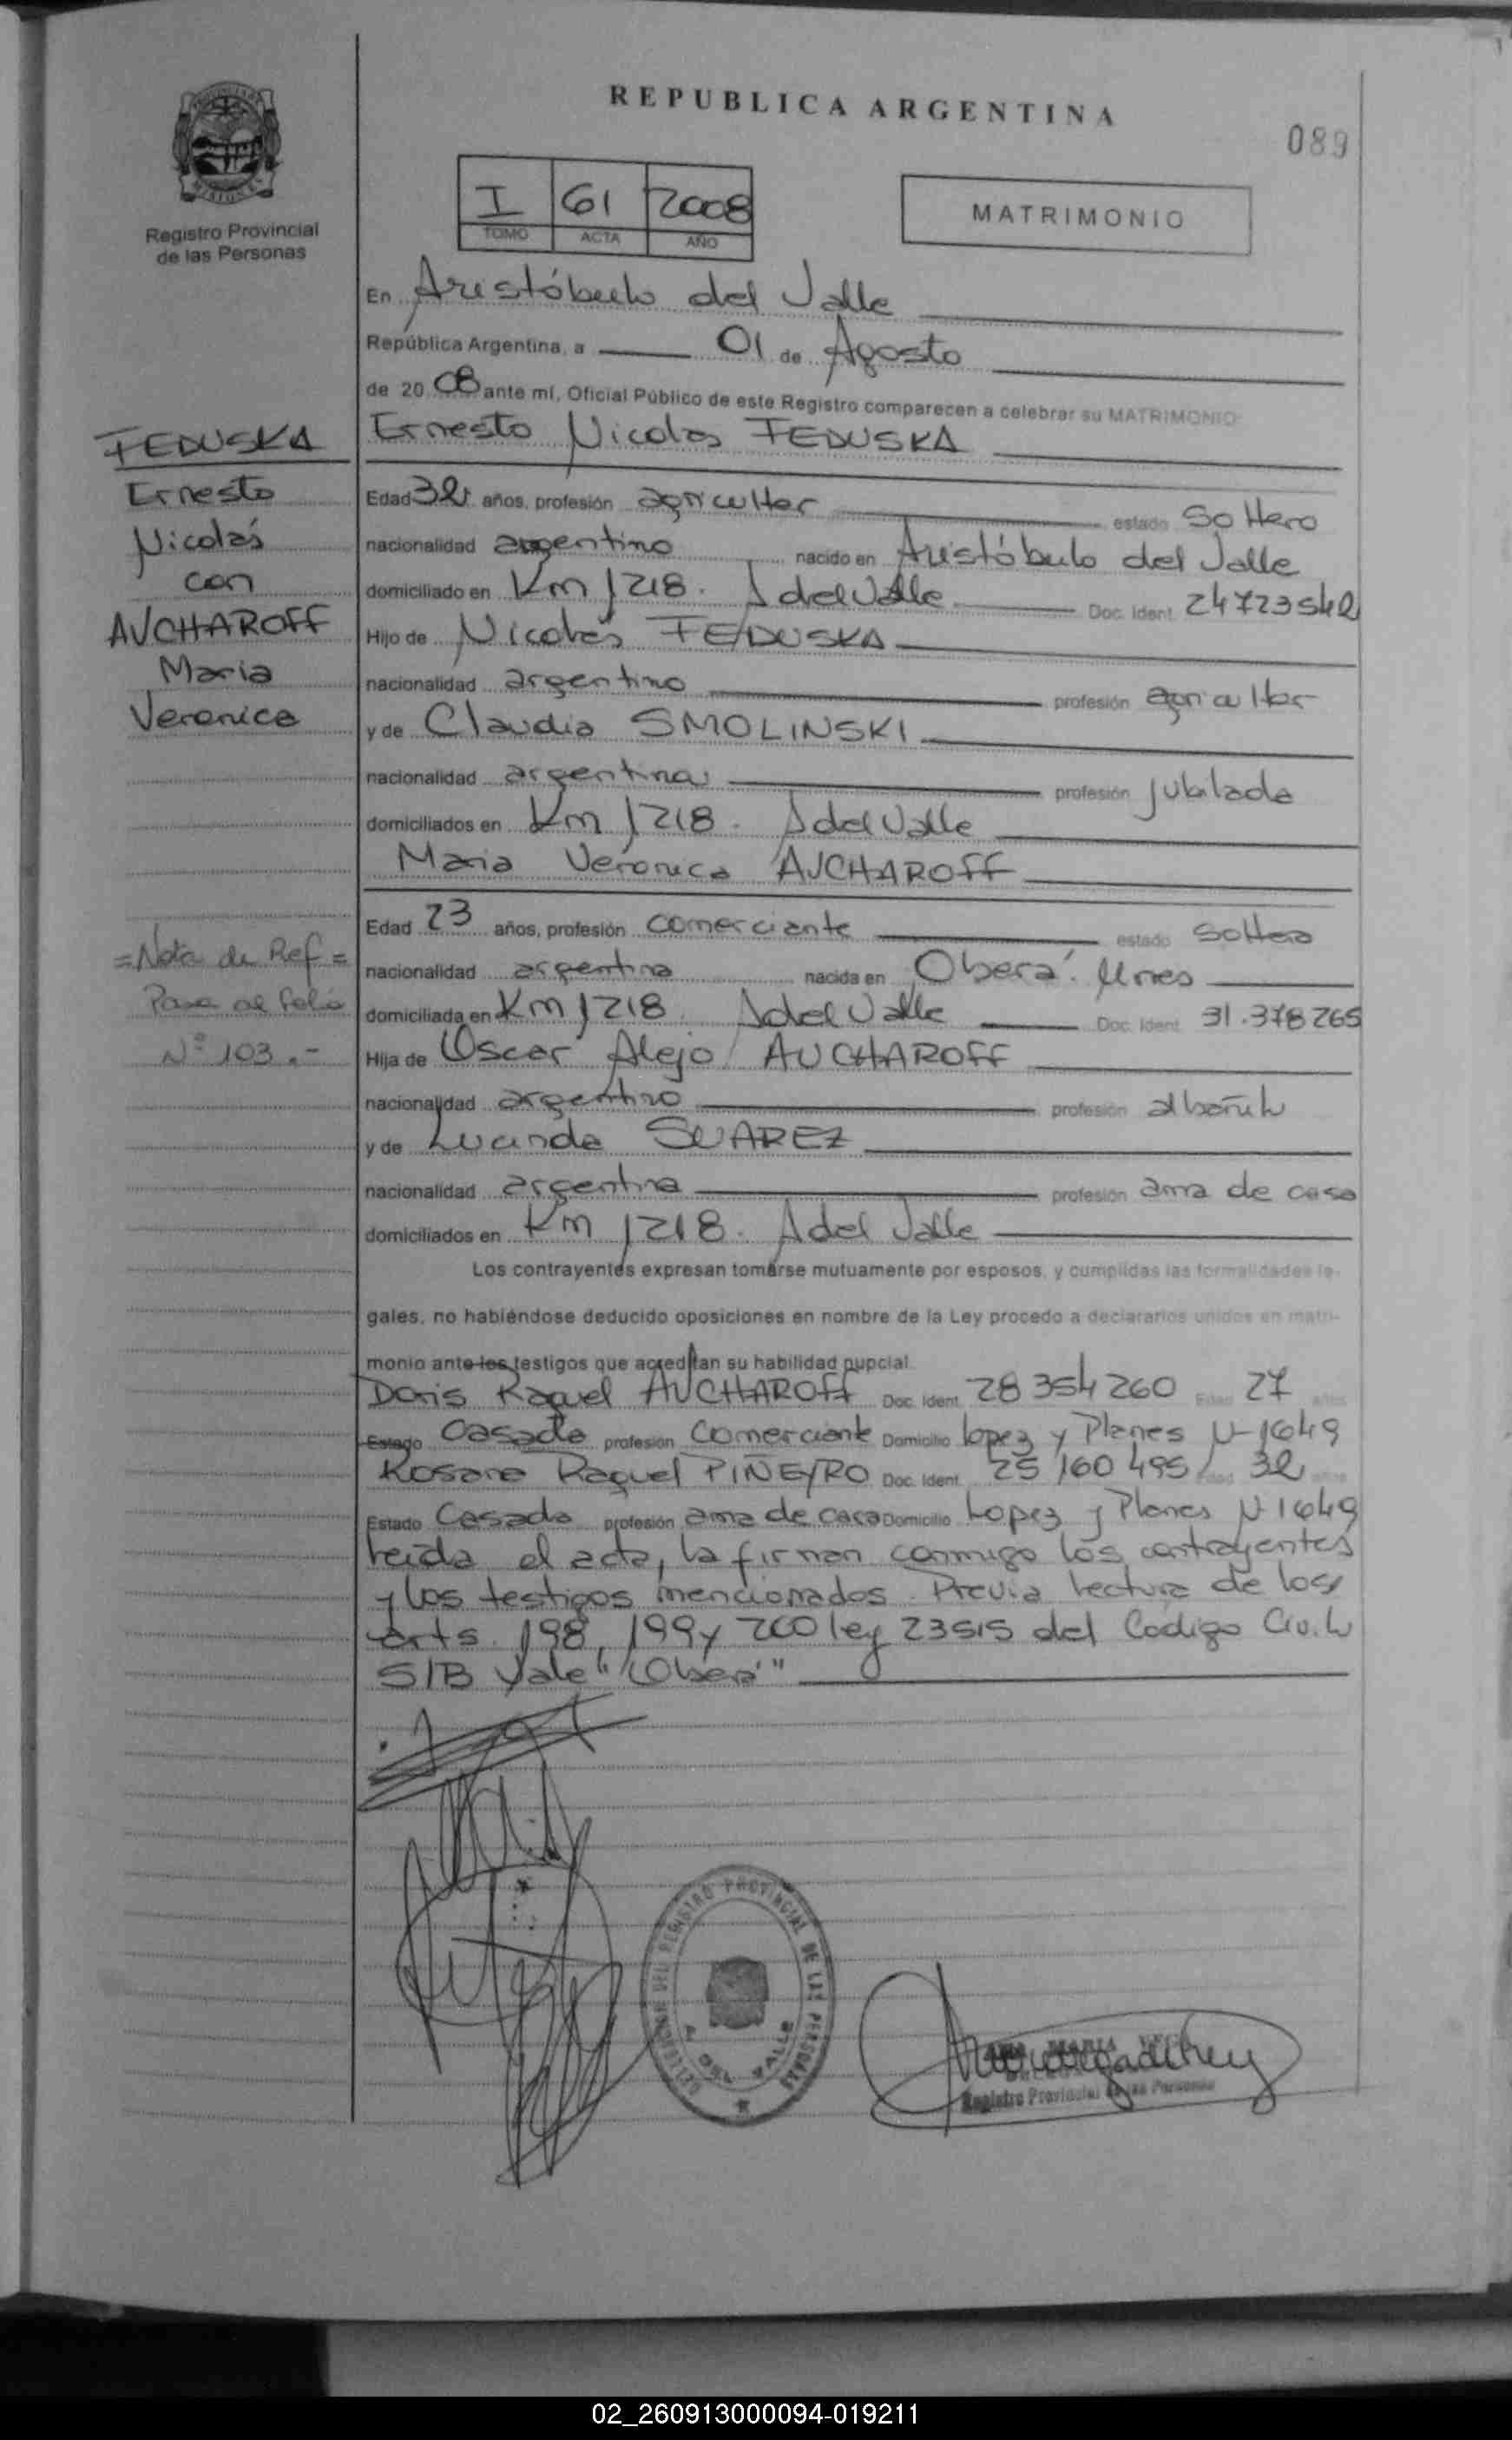 REPUBLICA ARGENTINA
089
Registro Provincial
de las Personas
I 61 2008
TOMO ACTA AÑO
MATRIMONIO
En Aristóbulo del Valle
República Argentina, a 01 de Agosto
de 20 08 ante mí, Oficial Público de este Registro comparecen a celebrar su MATRIMONIO
Ernesto Nicolas FEDUSKA
FEDUSKA
Ernesto
Nicolás
con
AUCHAROFF
Maria
Veronica
Edad 32 años, profesión agricultor estado Soltero
nacionalidad argentino nacido en Aristóbulo del Valle
domiciliado en Km 1218. A del Valle Doc. Ident. 24723542
Hijo de Nicolás FEDUSKA
nacionalidad argentino profesión agricultor
y de Claudia SMOLINSKI
nacionalidad argentina profesión jubilada
domiciliados en Km 1218. A del Valle
Maria Veronica AUCHAROFF
Edad 23 años, profesión comerciante estado Soltera
nacionalidad argentina nacida en Oberá. Mnes
domiciliada en Km 1218 A del Valle Doc. Ident. 31.378265
Hija de Oscar Alejo AUCHAROFF
nacionalidad argentino profesión albañil
y de Lucinda SUAREZ
nacionalidad argentina profesión ama de casa
domiciliados en Km 1218. A del Valle
=Nota de Ref=
Pasa al folio
Nº 103.-
Los contrayentes expresan tomarse mutuamente por esposos, y cumplidas las formalidades le-
gales, no habiéndose deducido oposiciones en nombre de la Ley procedo a declararlos unidos en matri-
monio ante los testigos que acreditan su habilidad nupcial
Doris Raquel AUCHAROFF Doc. Ident. 28354260 Edad 27 años
Estado Casada profesión Comerciante Domicilio Lopez y Planes N-1649
Rosana Raquel PIÑEYRO Doc. Ident. 25160495 Edad 32 años
Estado Casada profesión ama de casa Domicilio Lopez y Planes N 1649
Leída el acta, la firman conmigo los contrayentes
y los testigos mencionados. Previa lectura de los
arts. 198, 199 y 200 ley 23515 del Codigo Civil
S/B Vale "Oberá"
DEL REGISTRO PROVINCIAL DE LAS PERSONAS
A. DEL VALLE
MARIA
Registro Provincial de las Personas
02_260913000094-019211